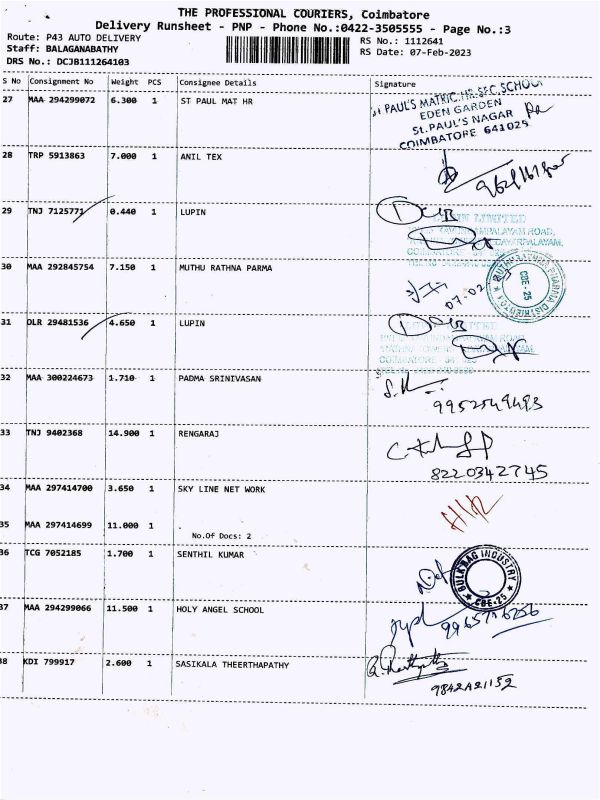 THE PROFESSIONAL COURIERS, Coimbatore
Delivery Runsheet - PNP - Phone No.:0422-3505555 - Page No.:3
Route: P43 AUTO DELIVERY
RS No.: 1112641
Staff: BALAGANABATHY
RS Date: 07-Feb-2023
DRS No.: DCJB111264103
S No Consignment No Weight PCS Consignee Details Signature
27 MAA 294299072 6.300 1 ST PAUL MAT HR
St PAUL'S MATRIC.HR.SEC.SCHOOL
EDEN GARDEN
St.PAUL'S NAGAR
COIMBATORE 641025
28 TRP 5913863 7.000 1 ANIL TEX
29 TNJ 7125771 0.440 1 LUPIN
LIMITED
30 MAA 292845754 7.150 1 MUTHU RATHNA PARMA
07-02
CBE-25
31 DLR 29481536 4.650 1 LUPIN
32 MAA 300224673 1.710 1 PADMA SRINIVASAN
9952549493
33 TNJ 9402368 14.900 1 RENGARAJ
8220342745
34 MAA 297414700 3.650 1 SKY LINE NET WORK
35 MAA 297414699 11.000 1
No.Of Docs: 2
36 TCG 7052185 1.700 1 SENTHIL KUMAR
BULK BAG INDUSTRY
CBE-25
37 MAA 294299066 11.500 1 HOLY ANGEL SCHOOL
38 KDI 799917 2.600 1 SASIKALA THEERTHAPATHY
9842421152